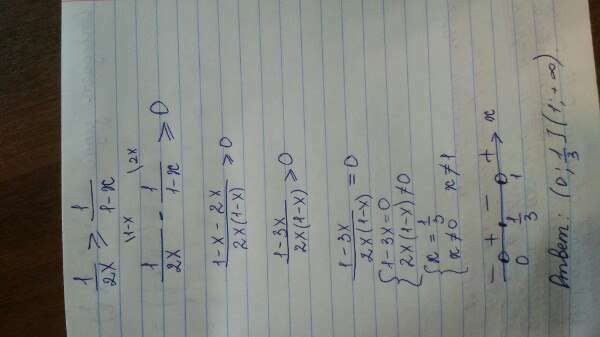 1/2x ≥ 1/1-x
\1-x \2x
1/2x - 1/1-x ≥ 0
1-x-2x/2x(1-x) ≥ 0
1-3x/2x(1-x) ≥ 0
1-3x/2x(1-x) = 0
{1-3x=0
{2x(1-x)≠0
{x = 1/3
{x≠0 x≠1
- + - + x
0 1/3 1
Ответ: (0; 1/3] (1; +∞)